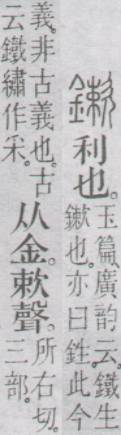 鏉利也。玉篇廣韵云。鐵生
鏉也。亦曰鉎此今
義。非古義也。古
云鐵繡作采。
从金。欶聲。所右切。
三部。